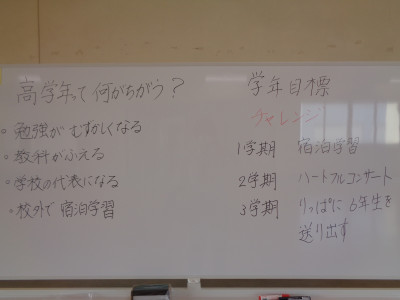 高学年って何がちがう？
・勉強が むずかしくなる
・教科が ふえる
・学校の代表になる
・校外で 宿泊学習
学年目標
チャレンジ
1学期 宿泊学習
2学期 ハートフルコンサート
3学期 りっぱに 6年生を
送り出す